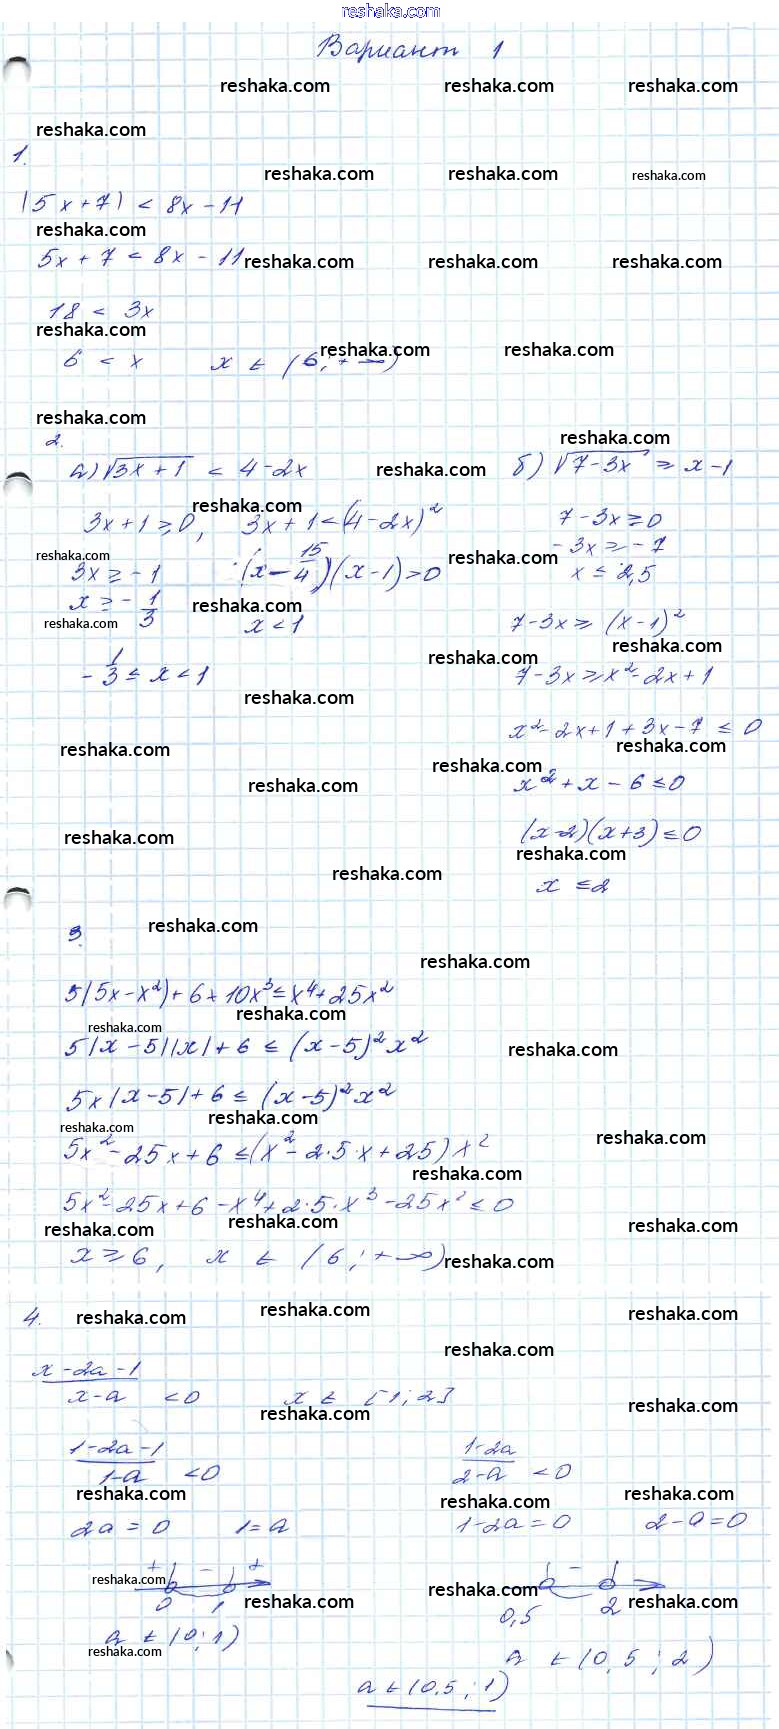 reshaka.com
Вариант 1
reshaka.com reshaka.com reshaka.com
reshaka.com
1.
reshaka.com reshaka.com reshaka.com
|5x+7| < 8x-11
reshaka.com
5x+7 < 8x-11 reshaka.com reshaka.com reshaka.com
18 < 3x
reshaka.com
6 < x x ∈ (6; +∞)
reshaka.com reshaka.com
reshaka.com
2.
reshaka.com
а) √3x+1 < 4-2x
reshaka.com
3x+1≥0, 3x+1<(4-2x)²
reshaka.com
3x≥-1 (x-15/4)(x-1)>0
reshaka.com
x≥-1/3 x<1
reshaka.com
-1/3≤x<1
reshaka.com
reshaka.com
reshaka.com
reshaka.com
б) √7-3x ≥ x-1
reshaka.com
7-3x≥0
-3x≥-7
reshaka.com
x≤2,5
7-3x≥(x-1)²
reshaka.com
reshaka.com
7-3x≥x²-2x+1
x²-2x+1+3x-7≤0
reshaka.com
reshaka.com
x²+x-6≤0
(x-2)(x+3)≤0
reshaka.com
reshaka.com
x≤2
3.
reshaka.com
reshaka.com
5|5x-x²|+6+10x³≤x⁴+25x²
reshaka.com
reshaka.com
5|x-5||x|+6≤(x-5)²x²
reshaka.com
5x|x-5|+6≤(x-5)²x²
reshaka.com
reshaka.com
5x²-25x+6≤(x²-2·5·x+25)x²
reshaka.com
reshaka.com
5x²-25x+6-x⁴+2·5·x³-25x²≤0
reshaka.com reshaka.com reshaka.com
x≥6, x ∈ (6; +∞) reshaka.com
4.
reshaka.com reshaka.com reshaka.com
reshaka.com
x-2a-1/x-a <0 x ∈ [1; 2]
reshaka.com reshaka.com
1-2a-1/1-a <0 1-2a/2-a <0
reshaka.com reshaka.com reshaka.com
2a=0 1=a 1-2a=0 2-a=0
+ - + -
reshaka.com reshaka.com
0 1 reshaka.com 0,5 2 reshaka.com
a ∈ (0; 1)
reshaka.com
a ∈ (0,5; 2)
a ∈ (0,5; 1)